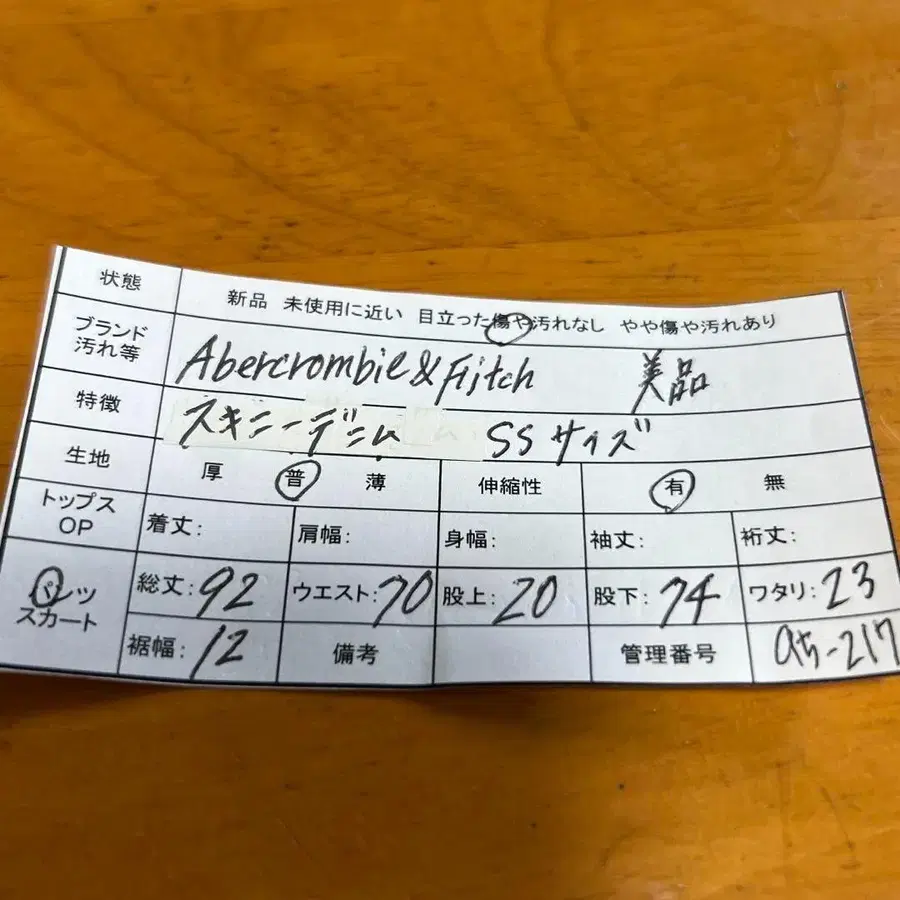 状態 新品 未使用に近い 目立った傷や汚れなし やや傷や汚れあり
ブランド
汚れ等 Abercrombie & Fitch 美品
特徴 スキニーデニム SSサイズ
生地 厚 普 薄 伸縮性 有 無
トップス
OP 着丈: 肩幅: 身幅: 袖丈: 裄丈:
パンツ
スカート 総丈:92 ウエスト:70 股上:20 股下:74 ワタリ:23
裾幅:12 備考 管理番号 -217